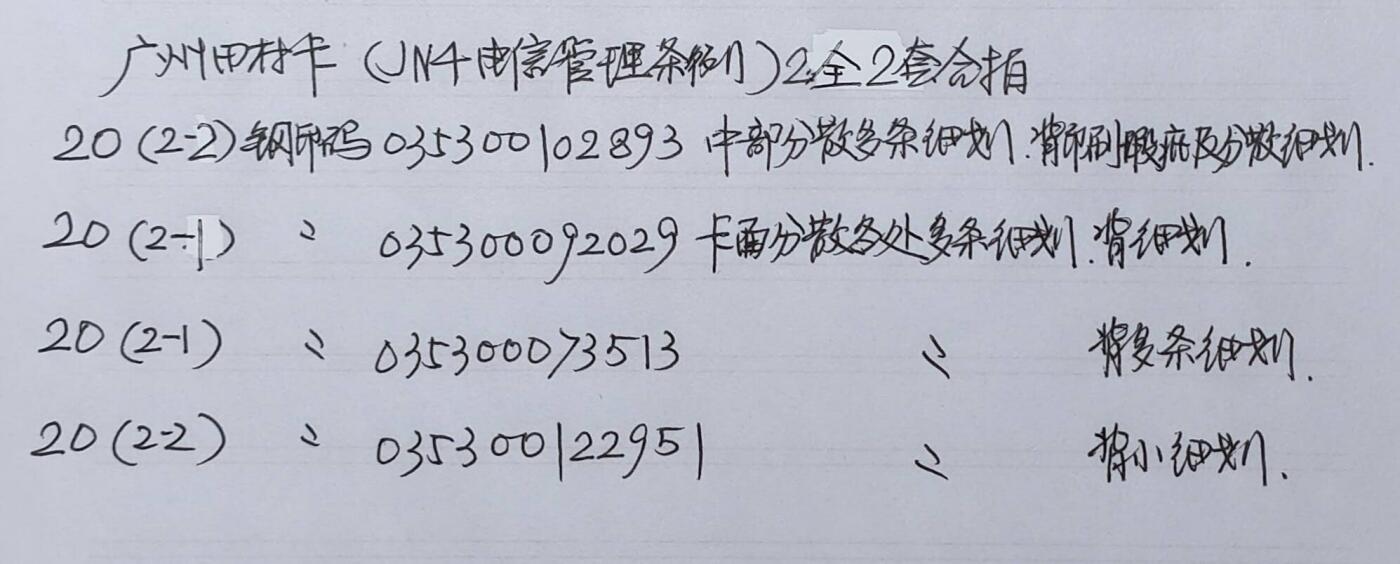 广州田村卡(JN4电信管理条例)2全2套合拍
20(2-2)钢印码035300102893中部分散多条细划.背印刷瑕疵及分散细划.
20(2-1) 〃 035300092029卡面分散多处多条细划.背细划.
20(2-1) 〃 035300073513 〃 背多条细划.
20(2-2) 〃 035300122951 〃 背小细划.